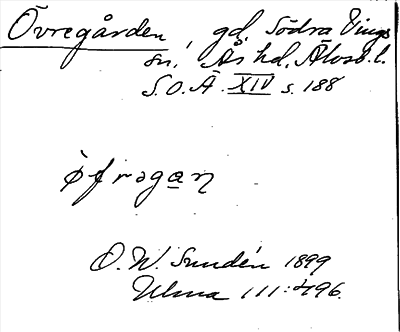 Övregården, gd, Södra Vings
sn, Ås hd, Älvsb. l.
S.O.Ä. XIV s. 188
ö̀frəgan
O. W. Sundén 1899
Ulma 111:496.